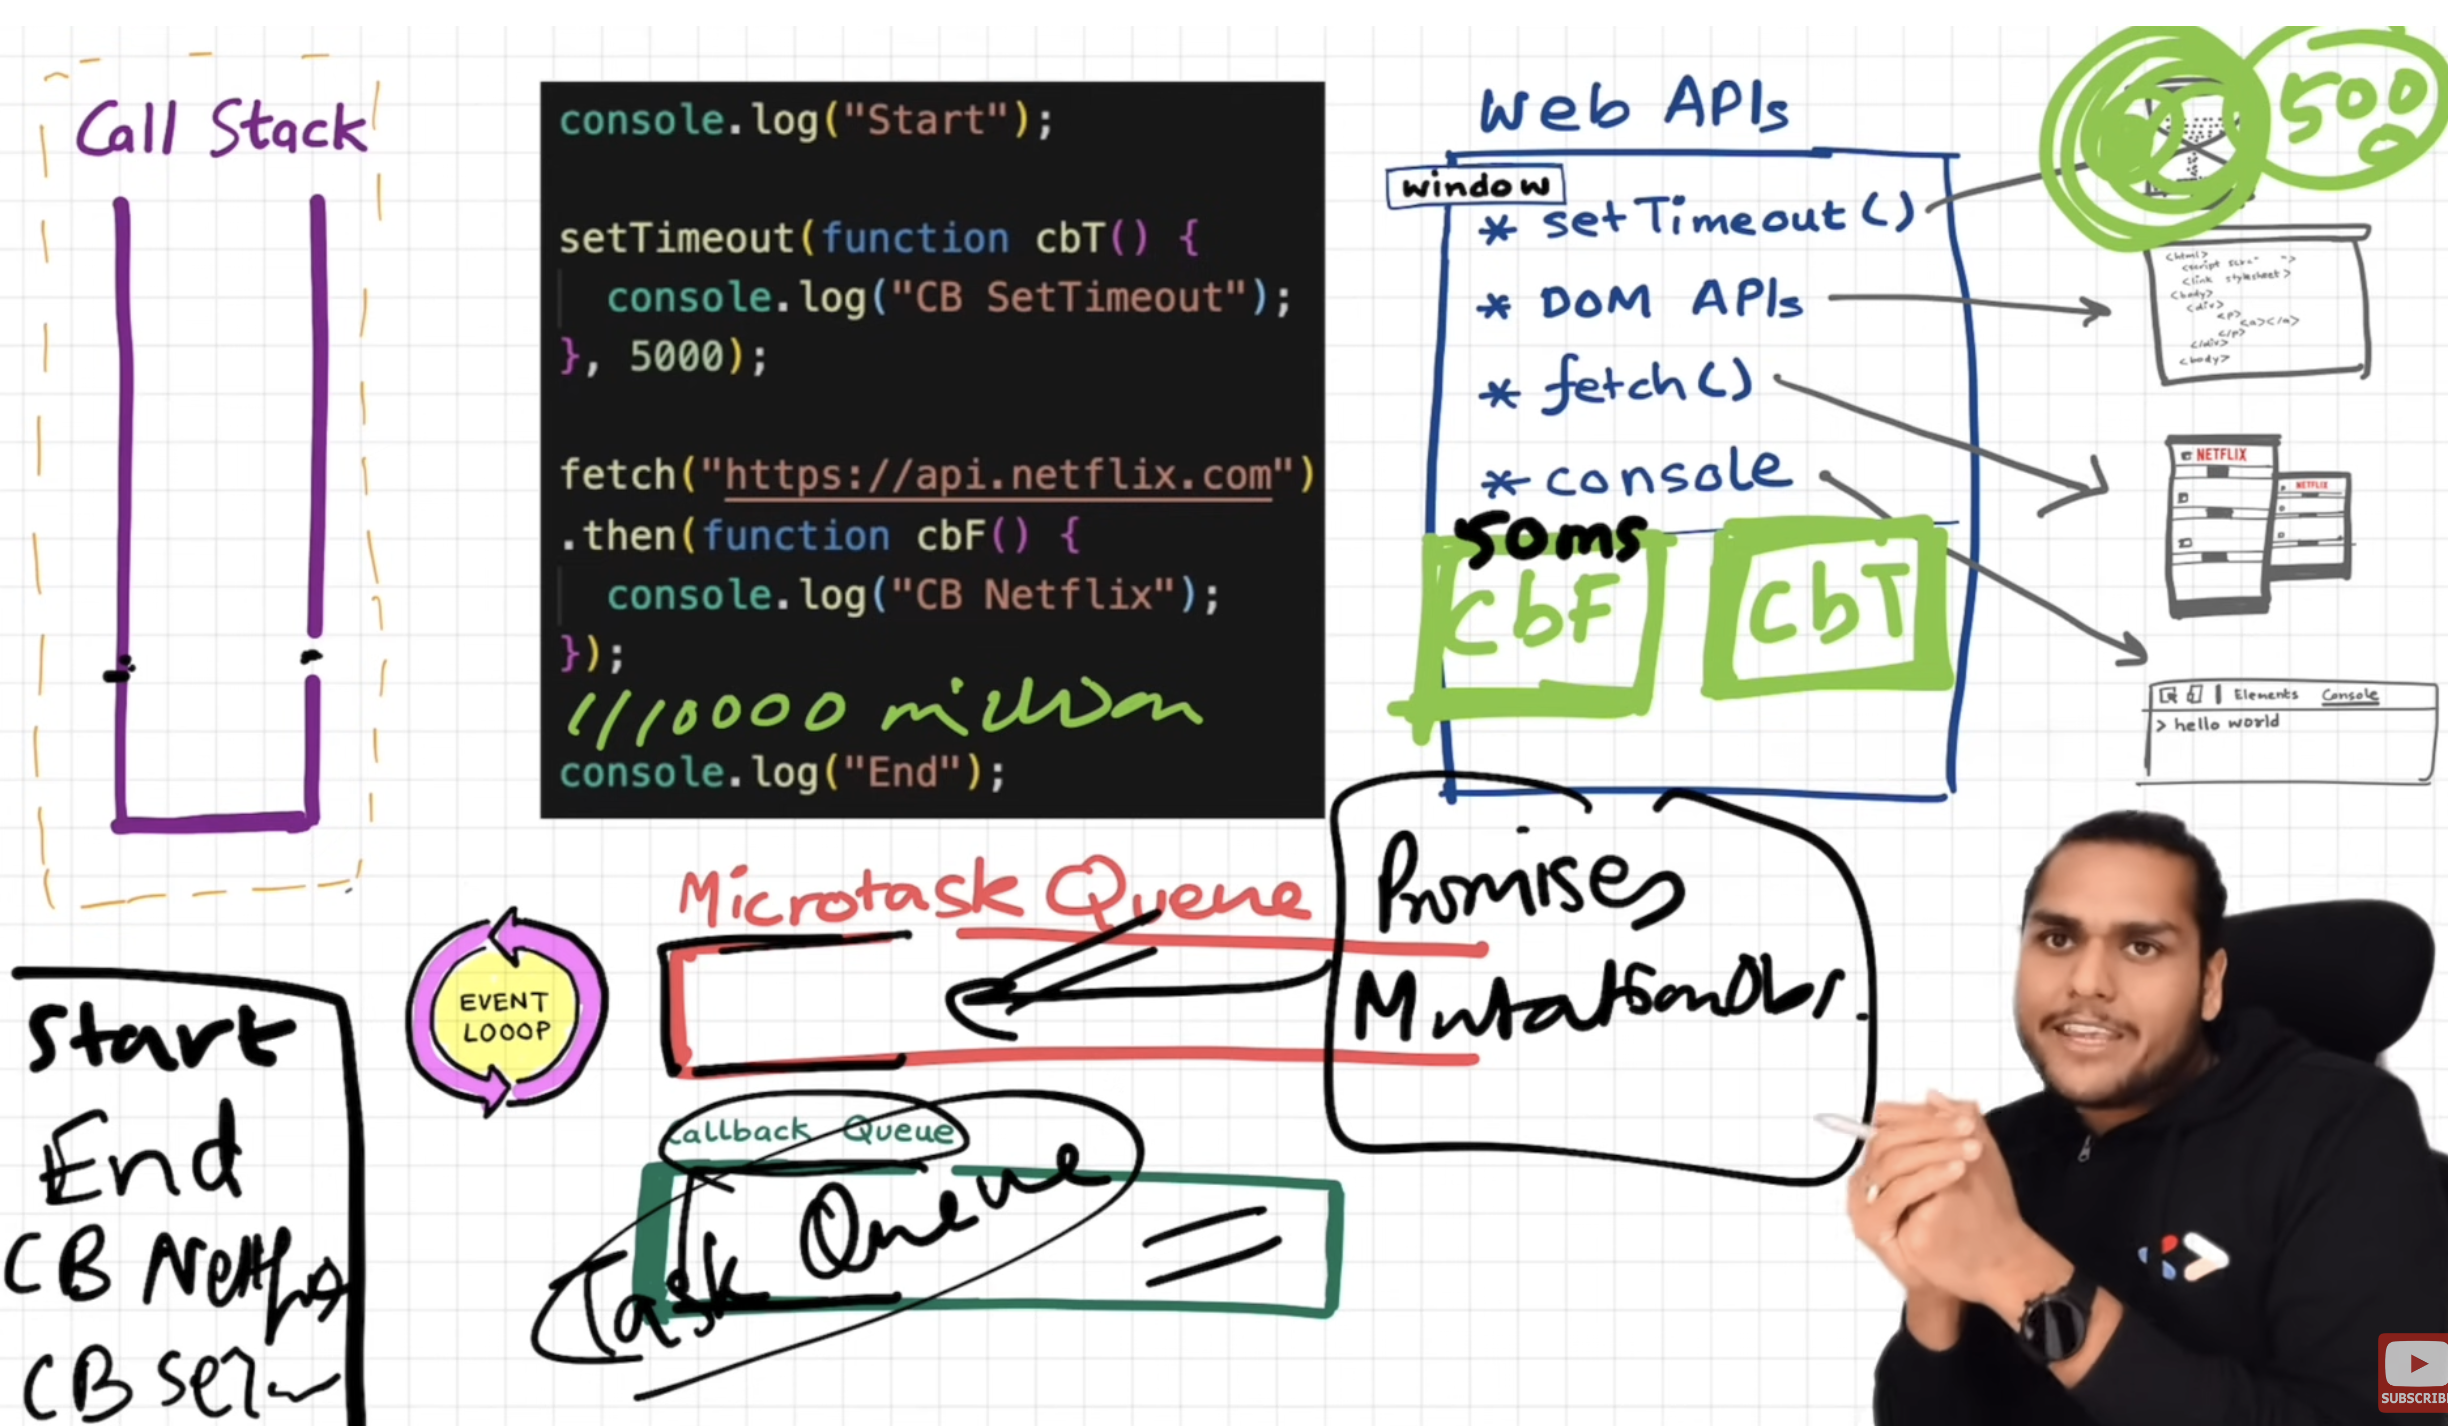 Call Stack
console.log("Start");
setTimeout(function cbT() {
console.log("CB SetTimeout");
}, 5000);
fetch("https://api.netflix.com")
.then(function cbF() {
console.log("CB Netflix");
});
////10000 million
console.log("End");
Web APIs
window
* setTimeout()
* DOM APIs
* fetch()
* console
50ms
CbF
CbT
5000
<html>
<script src=" ">
<link stylesheet>
<body>
<div>
<p>
<a></a>
</p>
</div>
<body>
NETFLIX
NETFLIX
Elements Console
> hello world
Microtask Queue
Promises
MutationObs.
EVENT
LOOOP
Callback Queue
Task Queue
Start
End
CB Netflix
CB Set
SUBSCRIBE